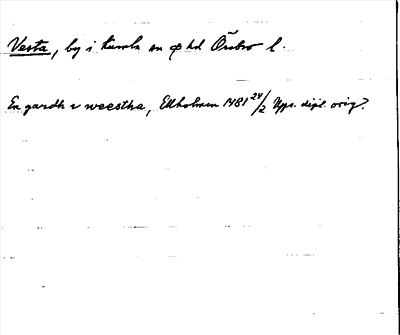 Vesta, by i Kumla sn o hd Örebro l.
En gardh i weestha, Ekholmen 1481 24/2 Upps. dipl. orig?